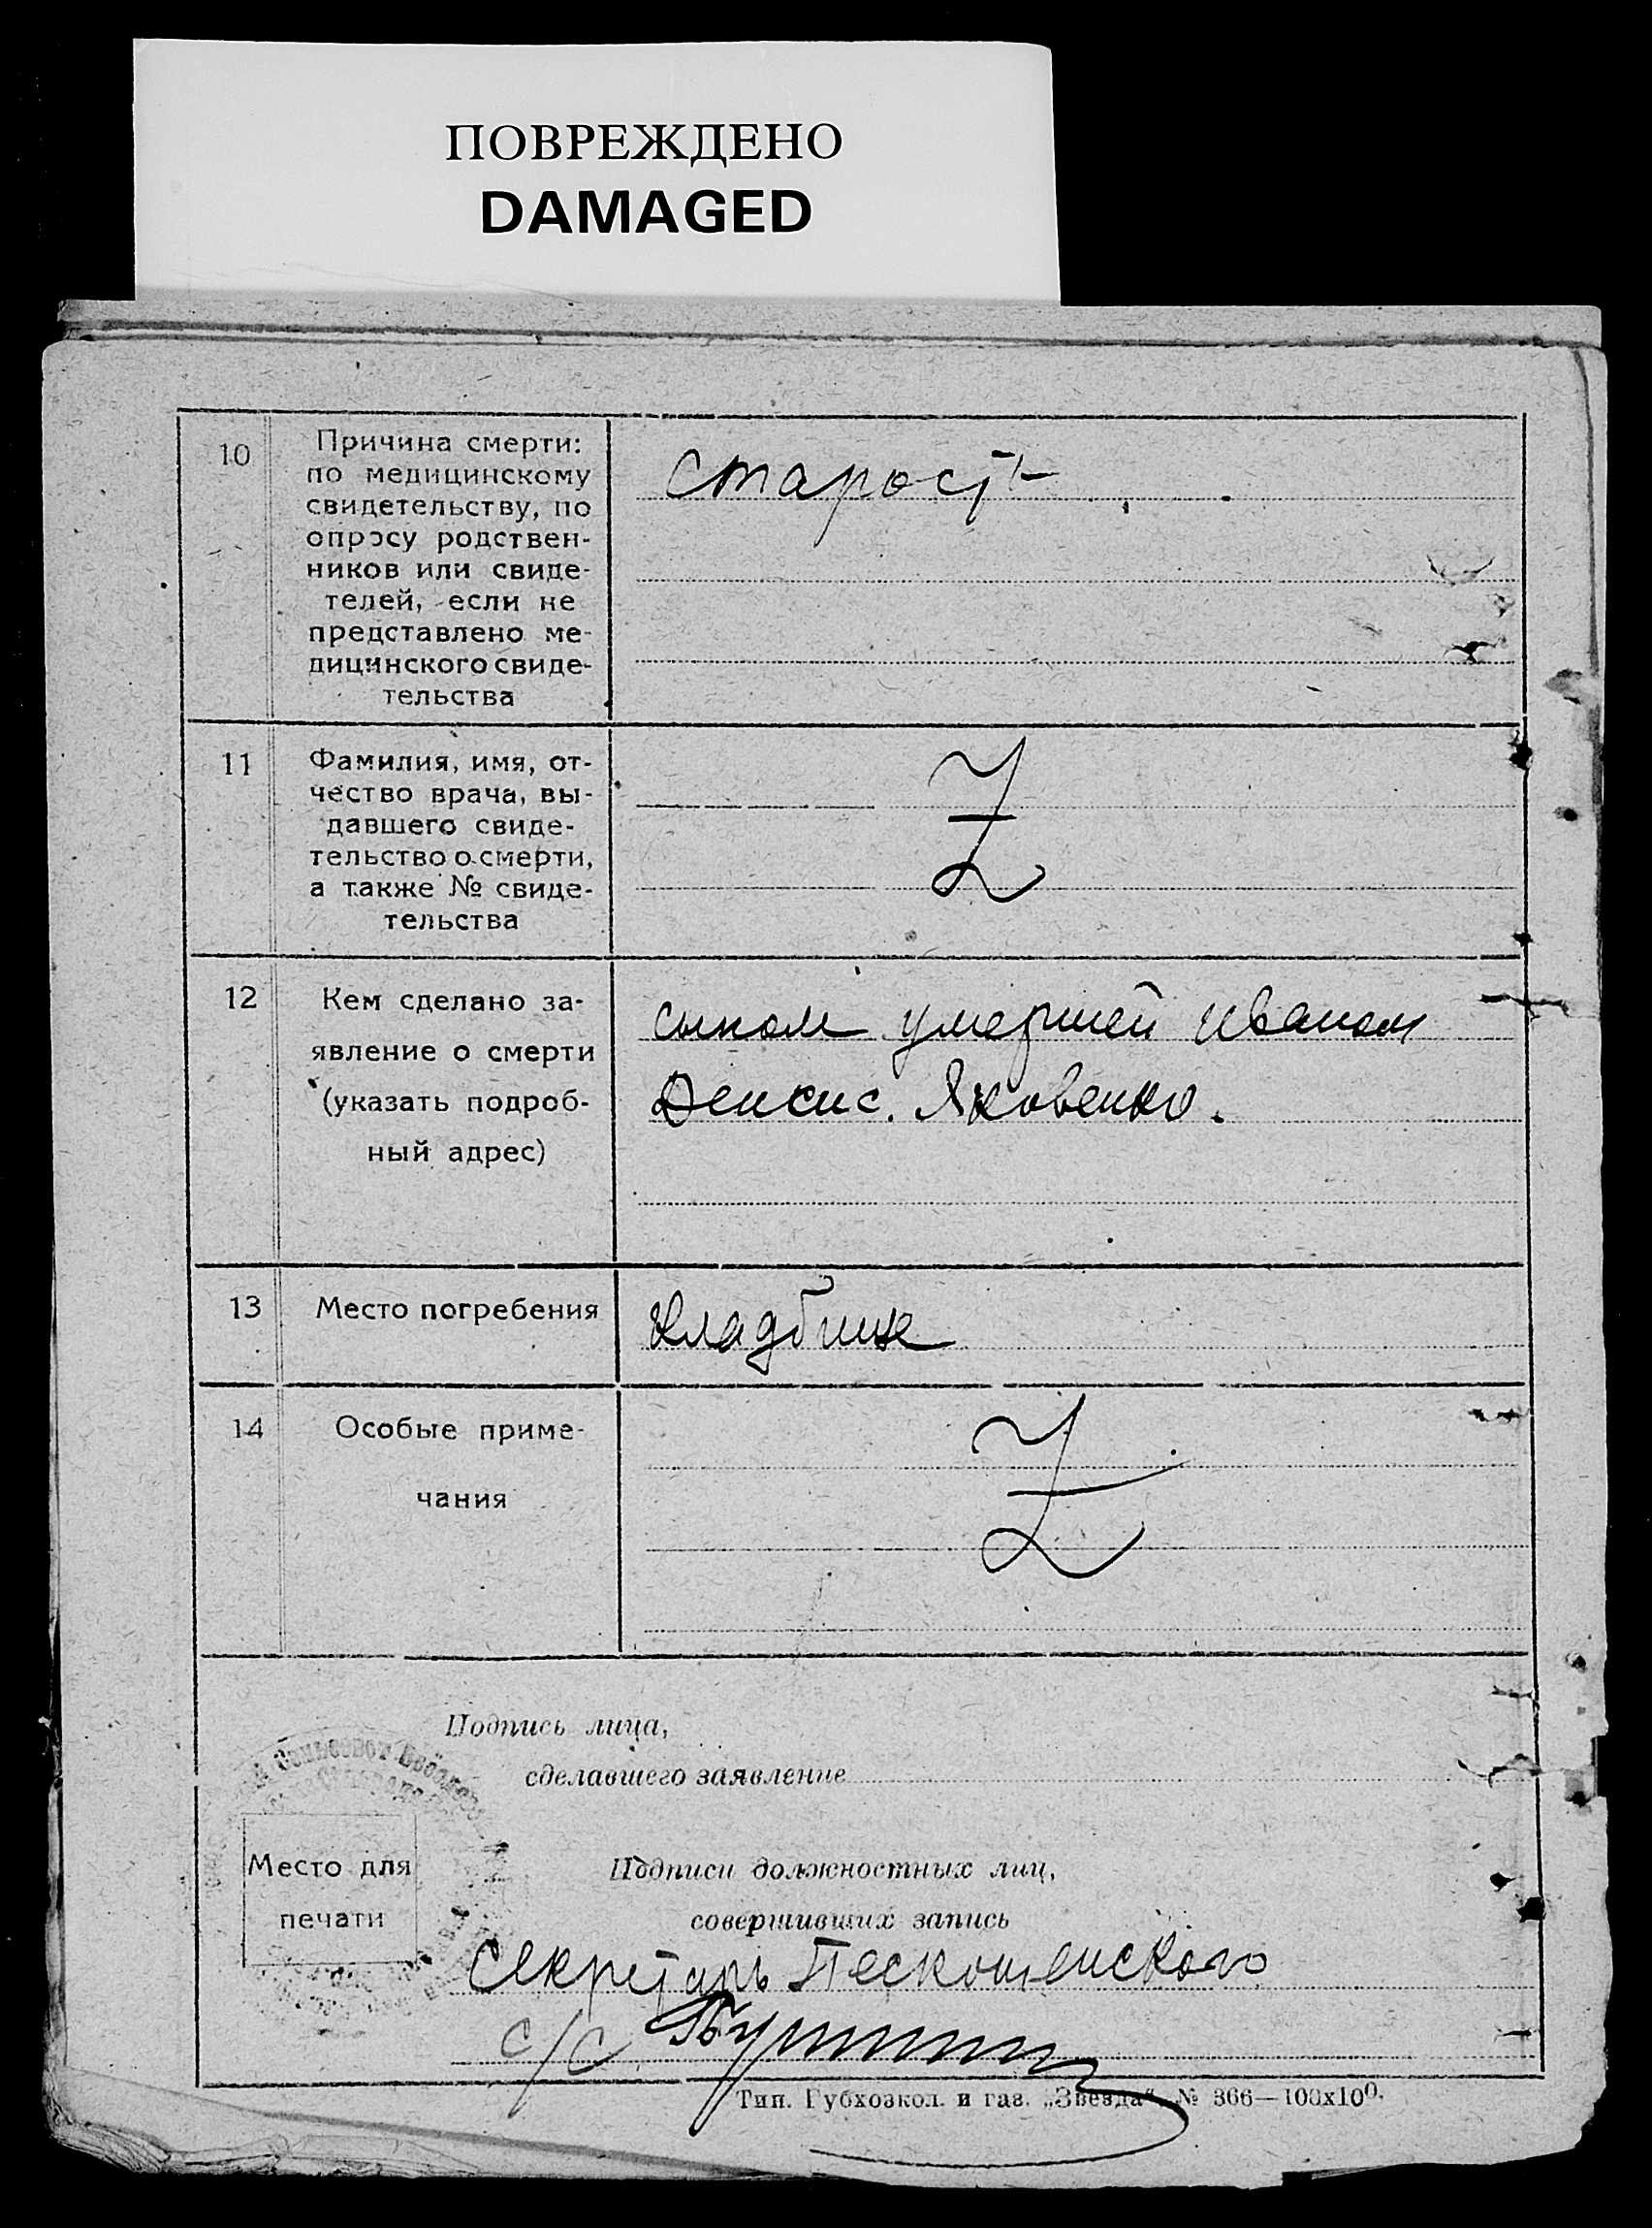 ПОВРЕЖДЕНО
DAMAGED
10
Причина смерти:
по медицинскому
свидетельству, по
опросу родствен-
ников или свиде-
телей, если не
представлено ме-
дицинского свиде-
тельства
старость
11
Фамилия, имя, от-
чество врача, вы-
давшего свиде-
тельство о смерти,
а также № свиде-
тельства
Z
12
Кем сделано за-
явление о смерти
(указать подроб-
ный адрес)
сыном умершей Иваном
Денсис. Яковенко.
13
Место погребения
кладбище
14
Особые приме-
чания
Z
Подпись лица,
сделавшего заявление
Сельсовет
Место для
печати
Подписи должностных лиц,
совершивших запись
Секретарь
с/с
Тип. Губхозкол. и газ. „Звезда“. № 366—100х100.